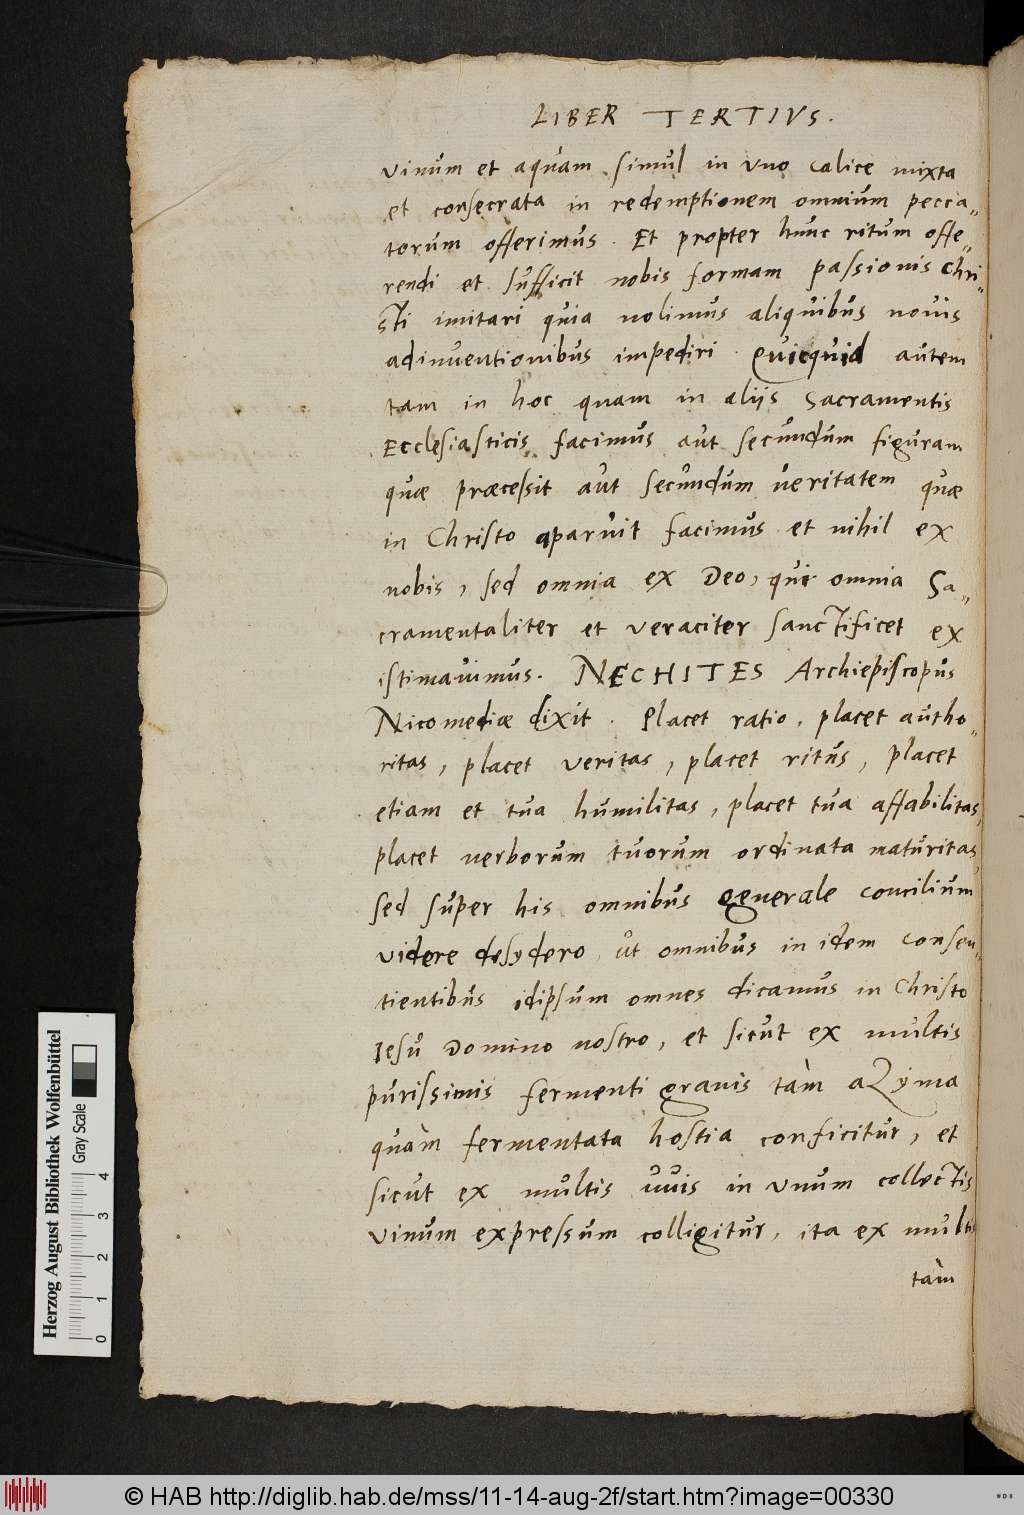 LIBER TERTIVS.
vinum et aquam simul in vno calice mixta
et consecrata in redemptionem omnium pecca„
torum offerimus. Et propter hunc ritum offe„
rendi et sufficit nobis formam passionis Chri„
sti imitari quia nolimus aliquibus nouis
adinuentionibus impediri. Quicquid autem
tam in hoc quam in aliis Sacramentis
Ecclesiasticis facimus aut secundum figuram
quæ præcessit aut secundum ueritatem quæ
in Christo aparuit facimus et nihil ex
nobis, sed omnia ex Deo, qui omnia Sa„
cramentaliter et veraciter sanctificet ex
istimauimus. NECHITES Archiepiscopus
Nicomediæ dixit. Placet ratio, placet autho„
ritas, placet veritas, placet ritus, placet
etiam et tua humilitas, placet tua affabilitas,
placet uerborum tuorum ordinata maturitas
sed super his omnibus generale concilium
videre desydero, ut omnibus in idem consen„
tientibus idipsum omnes dicamus in Christo
Iesu Domino nostro, et sicut ex multis
purissimis fermenti granis tàm aZyma
quàm fermentata hostia conficitur, et
sicut ex multis vuis in vnum collectis
vinum expressum colligitur, ita ex multis
tàm
Herzog August Bibliothek Wolfenbüttel
Gray Scale
0 1 2 3 4
© HAB http://diglib.hab.de/mss/11-14-aug-2f/start.htm?image=00330